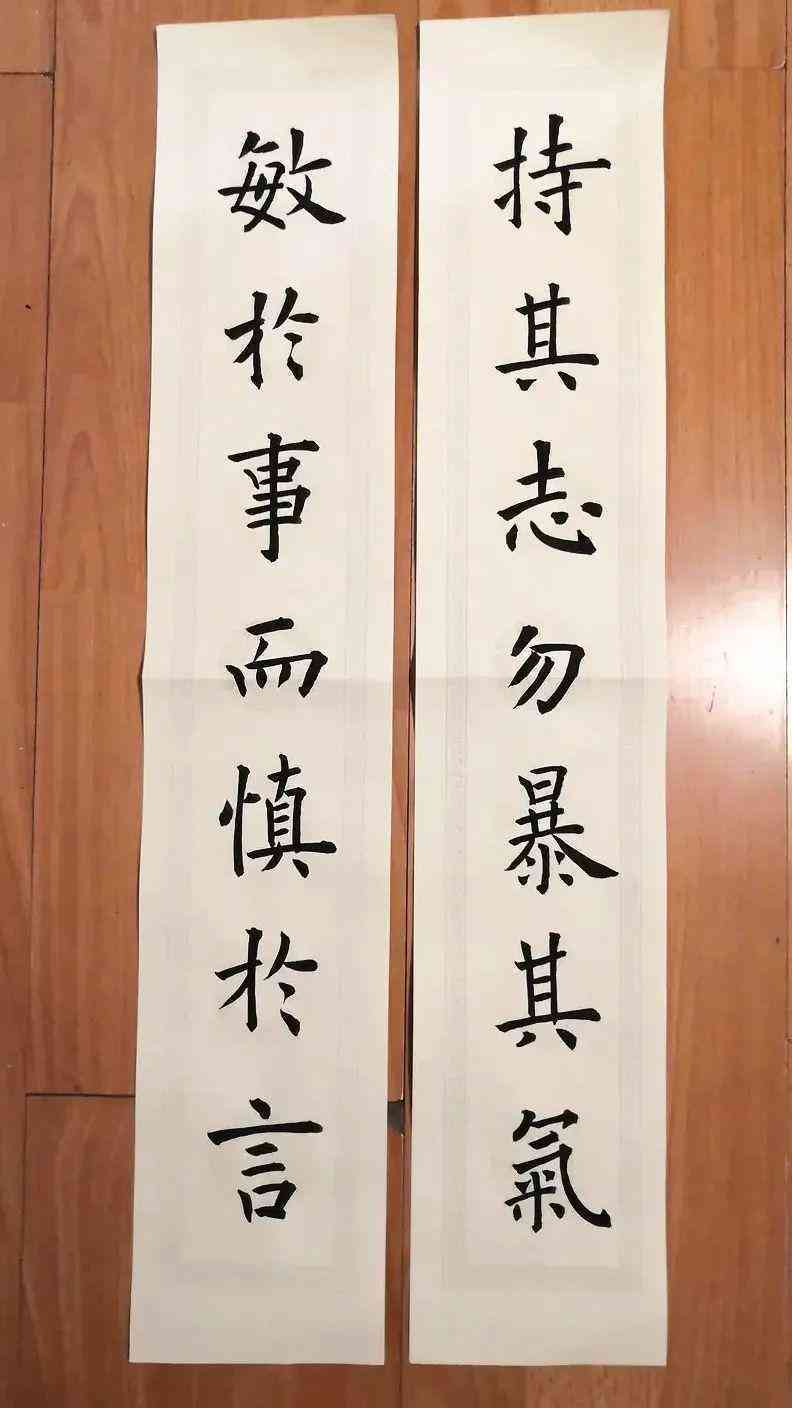 持其志勿暴其氣
敏於事而慎於言